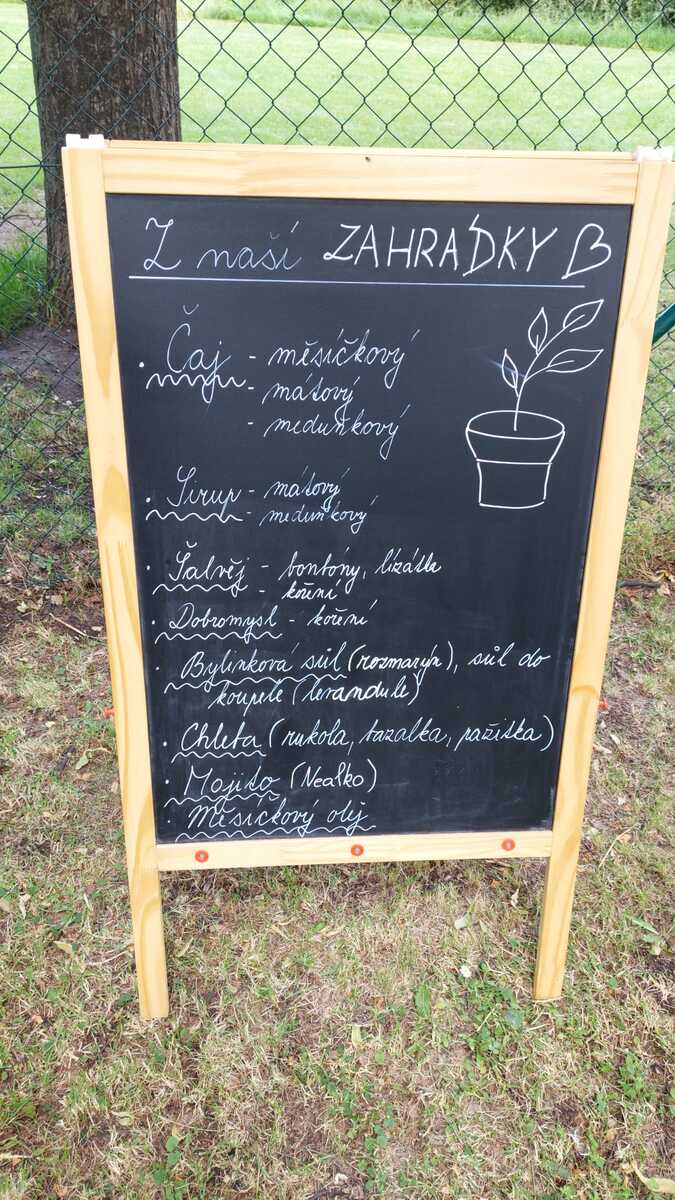 Z naší ZAHRÁDKY
• Čaj - měsíčkový
- mátový
- meduňkový
• Sirup - mátový
- meduňkový
• Šalvěj - bontóny, lízátka
- koření
• Dobromysl - koření
• Bylinková sůl (rozmarýn), sůl do
koupele (levandule)
• Chleba (rukola, bazalka, pažitka)
• Mojito (Nealko)
• Měsíčkový olej